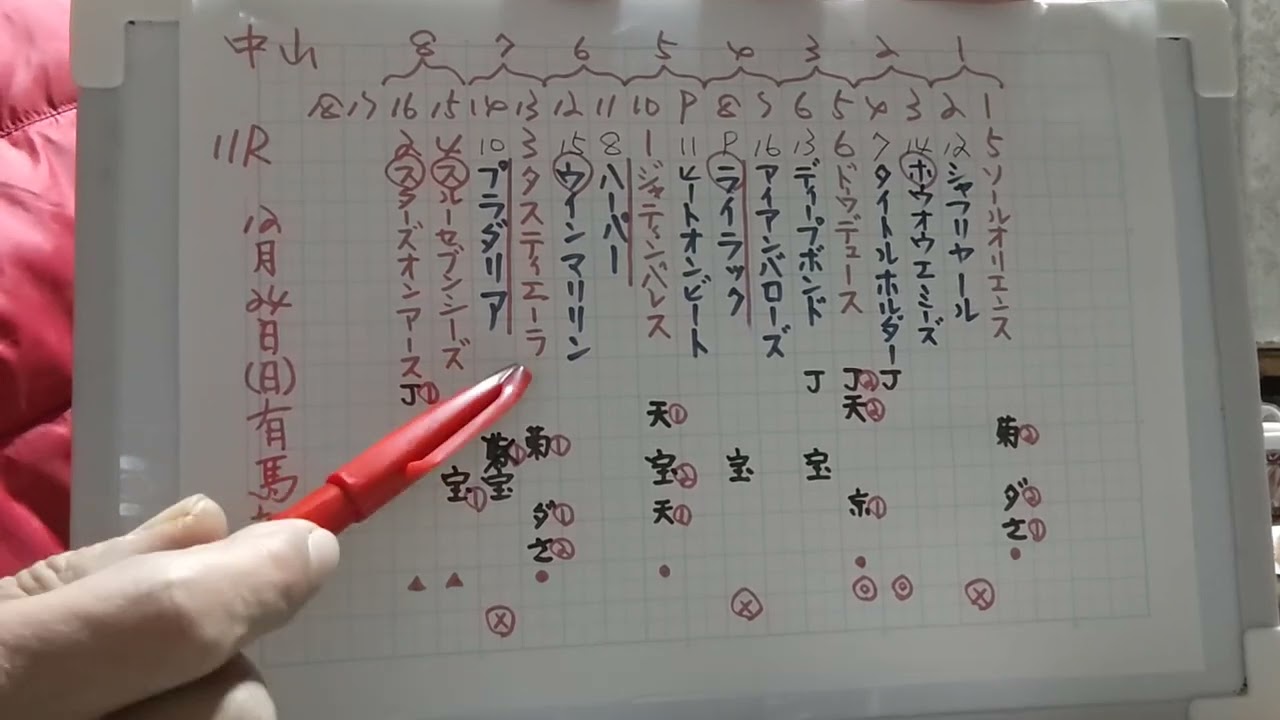 中山 8 7 6 5 4 3 2 1
18 17 16 15 14 13 12 11 10 9 8 7 6 5 4 3 2 1
11R 2 4 10 3 15 8 1 11 9 16 13 6 7 14 12 5
ソールオリエンス
シャフリヤール
ホウオウエミーズ
タイトルホルダー
ドウデュース
ディープボンド
アイアンバローズ
ライラック
ヒートオンビート
ジャティンパレス
ハーパー
ウインマリリン
タスティエーラ
プラダリア
スルーセブンシーズ
スターズオンアース
12月24日(日)有馬
J① J J② J
天① 天②
菊① 菊②
宝① 宝 宝② 宝 宝
ダ① 天① 京① ダ②
さ② さ①
▲ ▲ ● ● ● ●
ⓧ ⓧ ◎ ◎ ⓧ